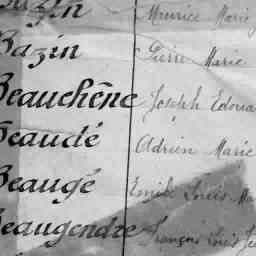 Bazin Maurice Marie
Bazin Pierre Marie
Beauchêne Joseph Edoua
Beaudé Adrien Marie
Beaugé Emile Louis Ma
Beaugendre François Louis Ju